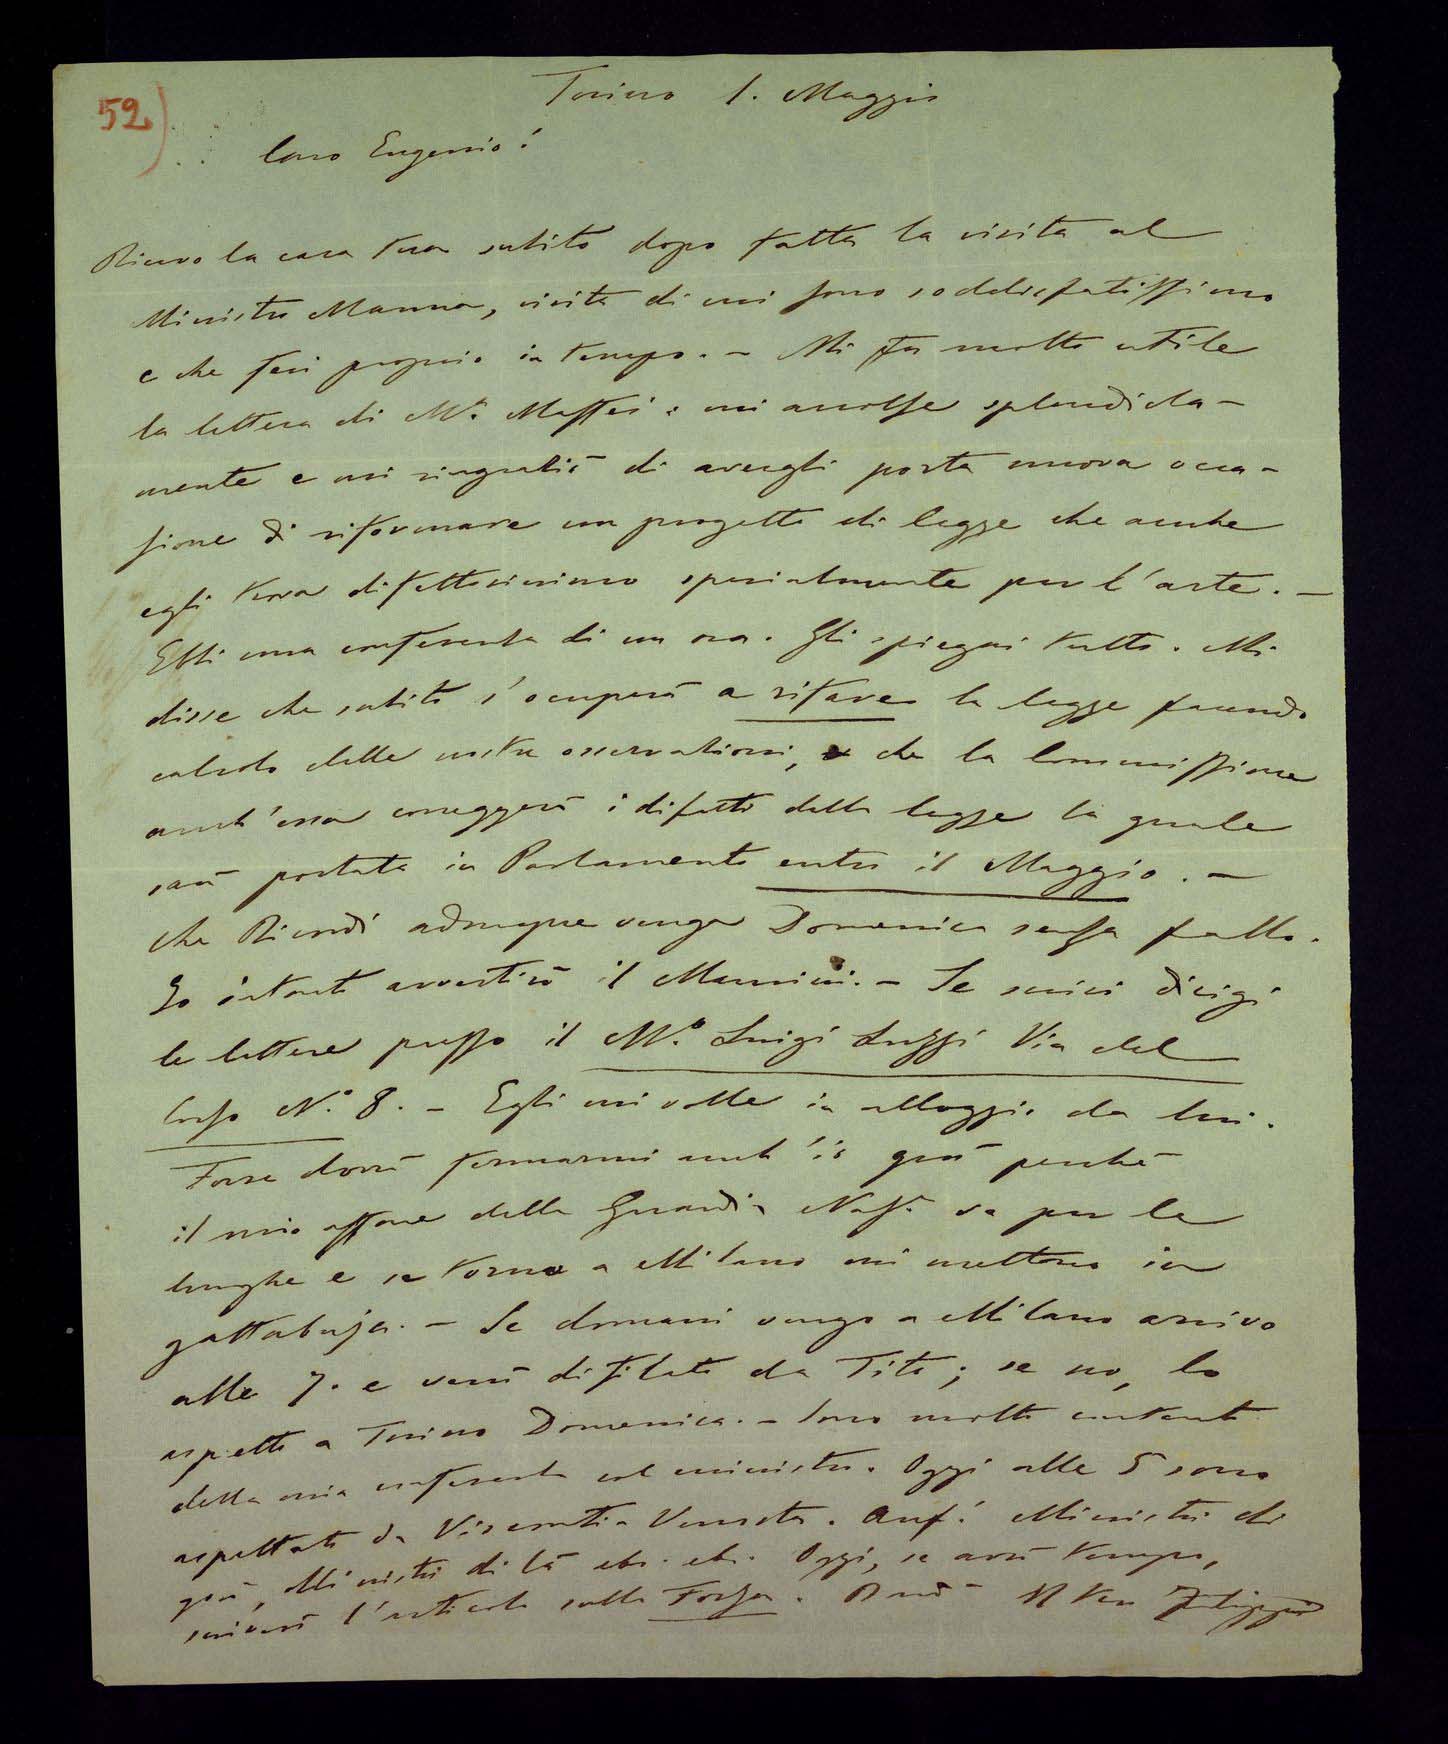 52)
Torino 1. Maggio
Caro Eugenio!
Ricevo la cara tua subito dopo fatta la visita al
Ministro Manna, visita di cui sono soddisfatissimo
e che feci proprio in tempo. – Mi fu molto utile
la lettera di Mr. Maffei: mi accolse splendida-
mente e mi ringraziò di avergli porta nuova occa-
sione di riformare un progetto di legge che anche
egli trova difettosissimo specialmente per l'arte. –
Ebbi una conferenza di un ora. Gli spiegai tutto. Mi
disse che subito s'occuperà a rifare la legge facendo
calcolo delle nostre osservazioni, e che la Commissione
anch'essa correggerà i difetti della legge la quale
sarà portata in Parlamento entro il Maggio. –
Che Ricordi adunque venga Domenica senza fallo.
Io intanto avvertirò il Mancini. – Se scrivi dirigi
le lettere presso il M.o Luigi Luzzi Via del
Corso N.o 8. – Egli mi volle in alloggio da lui.
Forse dovrò fermarmi anch'io quà perché
il mio affare della Guardia Naz. va per le
lunghe e se torno a Milano mi mettono in
gattabuja. – Se domani vengo a Milano arrivo
alle 7. e verrò difilato da Tito; se no, lo
aspetto a Torino Domenica. – Sono molto contento
della mia conferenza col ministro. Oggi alle 5 sono
aspettato da Visconti-Venosta. Auf! Ministri di
quà, Ministri di là ecc. ecc. Oggi, se avrò tempo,
scriverò l'articolo sulla Forza. Il tuo Filippo